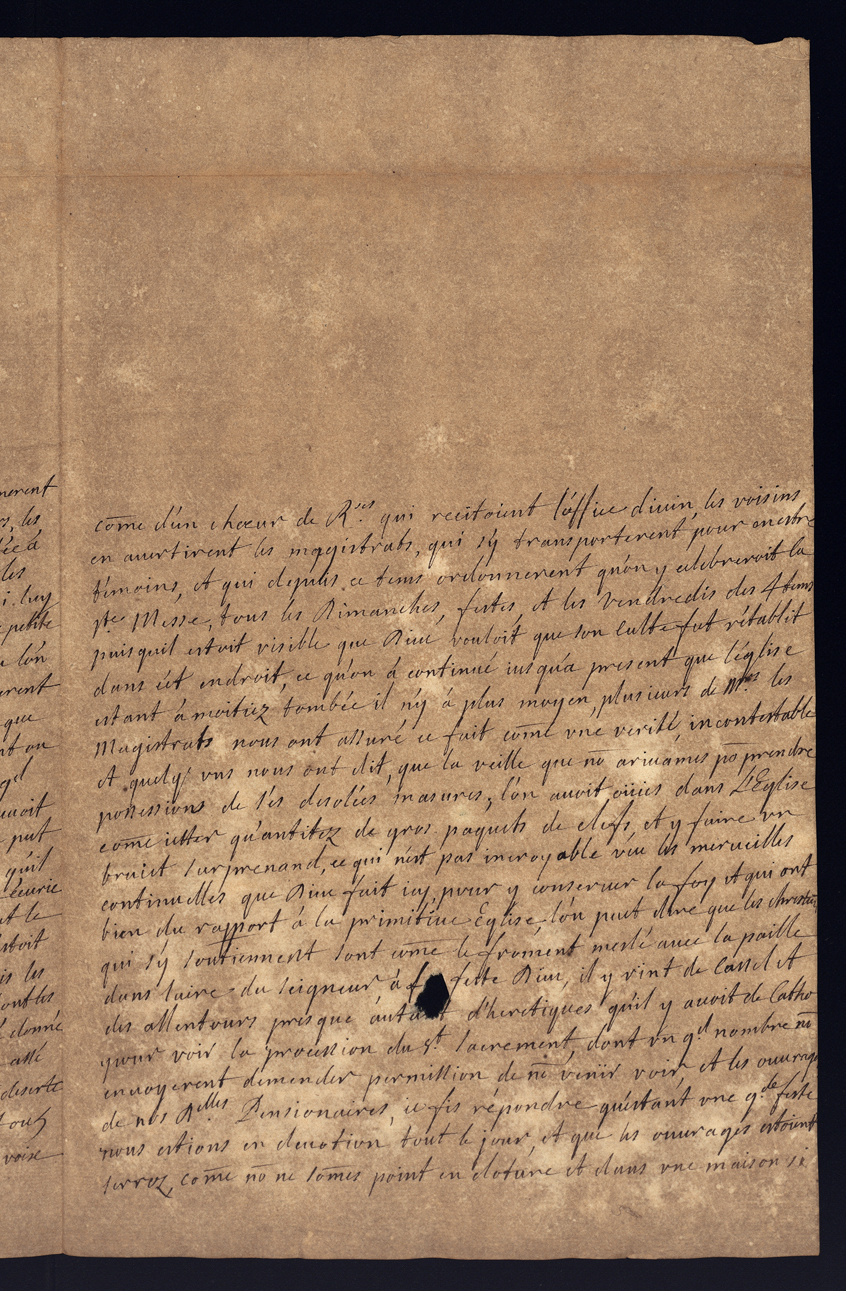 nerent
rs, les
lée à
les
i. luy
petite
u l'ón
erent
que
nt on
gd
uuoit
put
qu'il
Ecurie
et le
estoit
is les
sont les
donné
assé
deserte
tous
voise
cōme d'ún chœur de R.ses qui recitoient l'office diuin, les voisins
en auertirent les magistrats, qui s'ÿ transporterent pour en estre
témoins, et qui depuis ce tems ordonnerent qu'ón y celebreroit la
ste Messe, tous les Dimanches, festes, et les vendredis des 4 tems
puisqu'il estoit visible que Dieu vouloit que son culte fut rétablit
dans cét endroit, ce qu'ón á continué iusqu'a present que l'église
estant à moitiez tombée il n'ÿ à plus moyen, plusieurs de Mrs les
Magistrats nous ont assuré ce fait cōme vne verité incontestable
et quelq' vns nous ont dit, que la veille que nō ariuames pō prendre
possessions de s'es desolées masures, l'ón auoit oüies dans L'Eglise
cōme ietter qu'antitez de gros paquets de clefs, et y faire vn
bruict surprenand, ce qui n'est pas incroyable vüe les merueilles
continuelles que Dieu fait icy pour y conseruer la foy et qui ont
bien du rapport à la primitiue Eglise, l'ón peut dire que les chrestiens
qui s'ÿ soutiennent sont cōme le froment meslé auec la paille
dans l'aire du seigneur à feste Dieu, il y vint de Cassel et
des allentours presque áutant d'heretiques qu'il y auoit de Catho
pour voir la procession du st. sacrement, dont vn gd nombre nō
enuoyerent demender permission de nō venir voir, et les ouurages
de nos Delles Pensionaires, ie fis répondre qu'éstant vne gde feste
nous estions en deuotion tout le jour, et que les ouurages estoient
serrez, cōme nō ne sōmes point en cloture et dans vne maison si